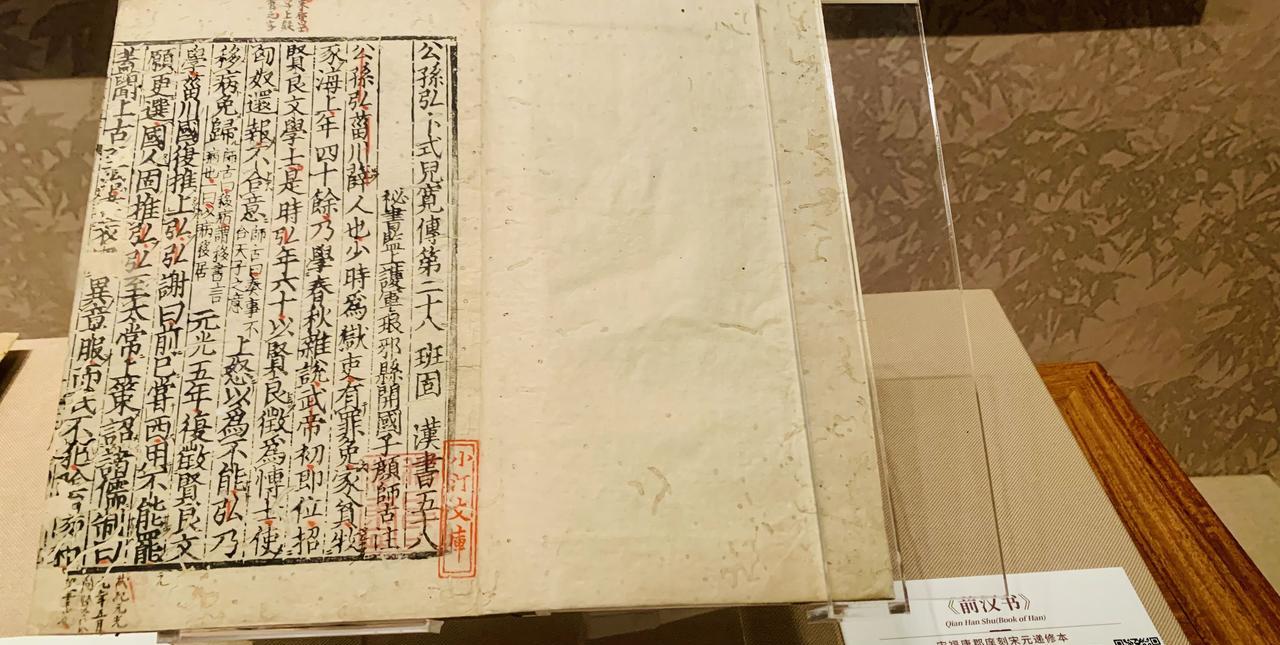 公孫弘卜式兒寬傳第二十八 班固 漢書五十八
秘書監上護軍琅邪縣開國子顏師古注
公孫弘菑川薛人也少時爲獄吏有罪免家貧牧
豕海上年四十餘乃學春秋雜說武帝初即位招
賢良文學士是時弘年六十以賢良徵爲博士使
匈奴還報不合意師古曰奏事不合天子之意上怒以爲不能弘乃
移病免歸師古曰移病謂移書言病也一曰以病移居元光五年復徵賢良文
學菑川國復推上弘弘謝曰前已嘗西用不能罷
願更選國人固推弘弘至太常上策詔諸儒制曰
蓋聞上古 異章服而民不犯
小汀文庫
《前汉书》
Qian Han Shu(Book of Han)
宋福唐郡庠刻宋元递修本